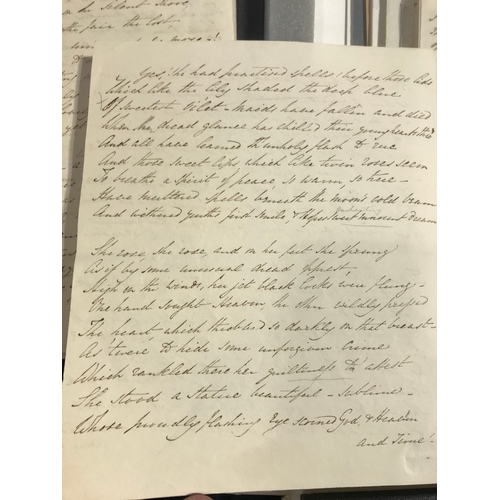 the Silent Shore,
the fair the lost
no more!
Yes, she had practised spells! before those lids
Which like the lily shaded the deep blue
Of sweetest vilet - Maids have fallen and died
When the dread glance has chill'd their young hearts
And all have learned th' unholy flash to rue
And those sweet lips which like twin roses seem
To breathe a spirit of peace, so warm, so true -
Have muttered spells beneath the moon's cold beam
And withered youth's first smile, & Hopes sweet innocent dream
She rose, she rose, and on her feet she sprung
As if by some unusual dread opprest,
High on the winds, her jet black locks were flung -
One hand sought Heaven, the other wildly pressed
The heart which throbbed so darkly on that breast -
As 'twere to hide some unforgiven crime
Which rankled there her guiltiness to attest
She stood a statue beautiful - sublime -
Whose proudly flashing Eye scorned God, & Heav'n
and Time! -